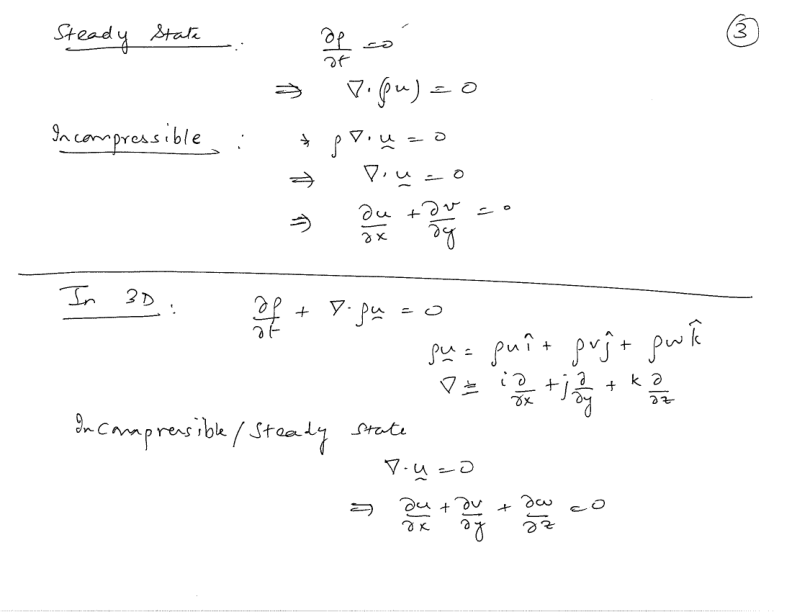 ③
Steady State : ∂ρ/∂t = 0
⇒ ∇·(ρu) = 0
Incompressible : ⇒ ρ∇·ṵ = 0
⇒ ∇·ṵ = 0
⇒ ∂u/∂x + ∂v/∂y = 0
In 3D : ∂ρ/∂t + ∇·ρṵ = 0
ρṵ = ρuî + ρvĵ + ρwk̂
∇ ≡ i ∂/∂x + j ∂/∂y + k ∂/∂z
Incompressible/Steady state
∇·ṵ = 0
⇒ ∂u/∂x + ∂v/∂y + ∂w/∂z = 0